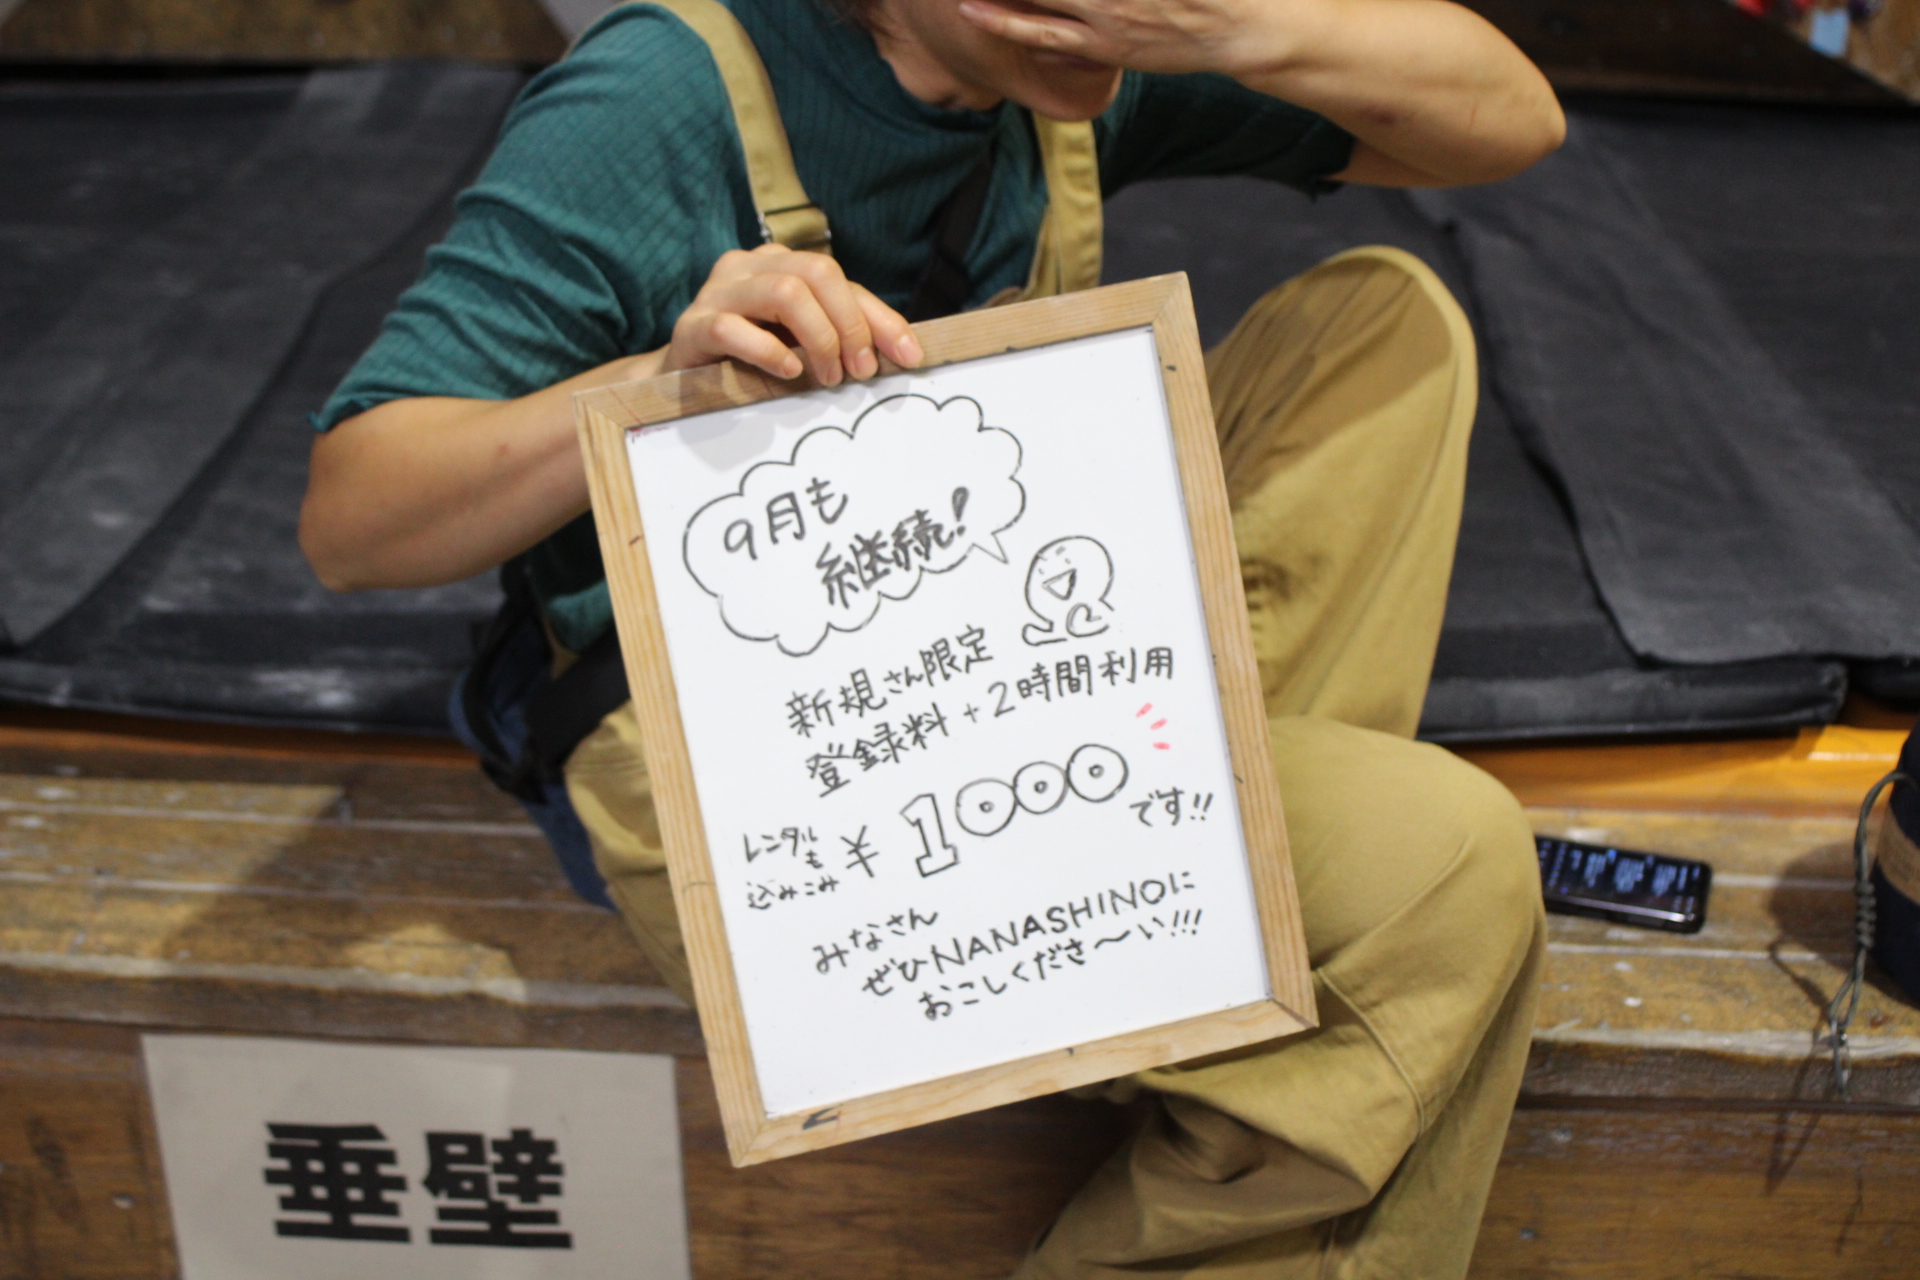 9月も
継続!
新規さん限定
登録料+2時間利用
レンタル
も
込みこみ
¥1000
です!!
みなさん
ぜひNANASHINOに
おこしくださ〜い!!!
垂壁